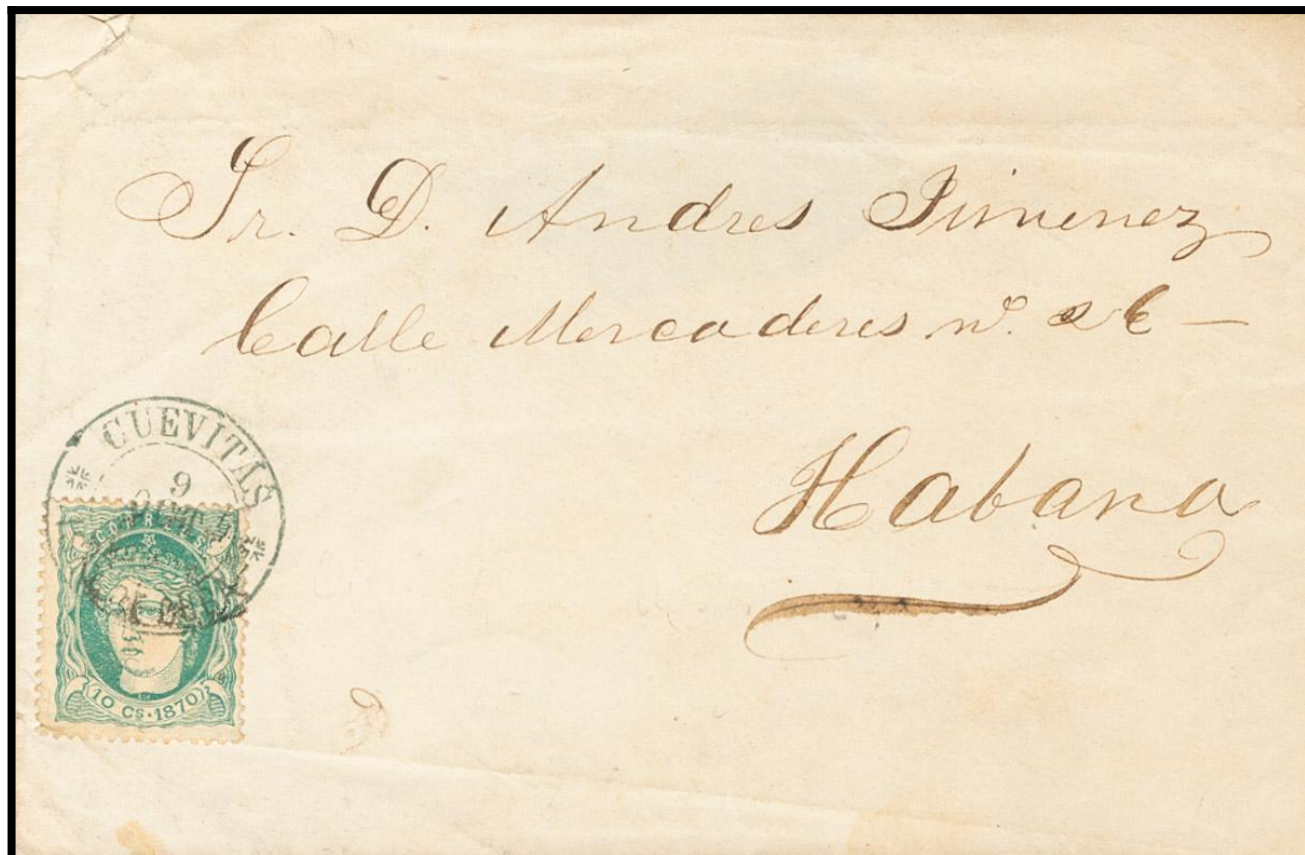 Sr. D. Andres Jimenez
Calle Mercaderes nº. 26 —
Habana
CUEVITAS
9
CORREOS
10 Cs. 1870